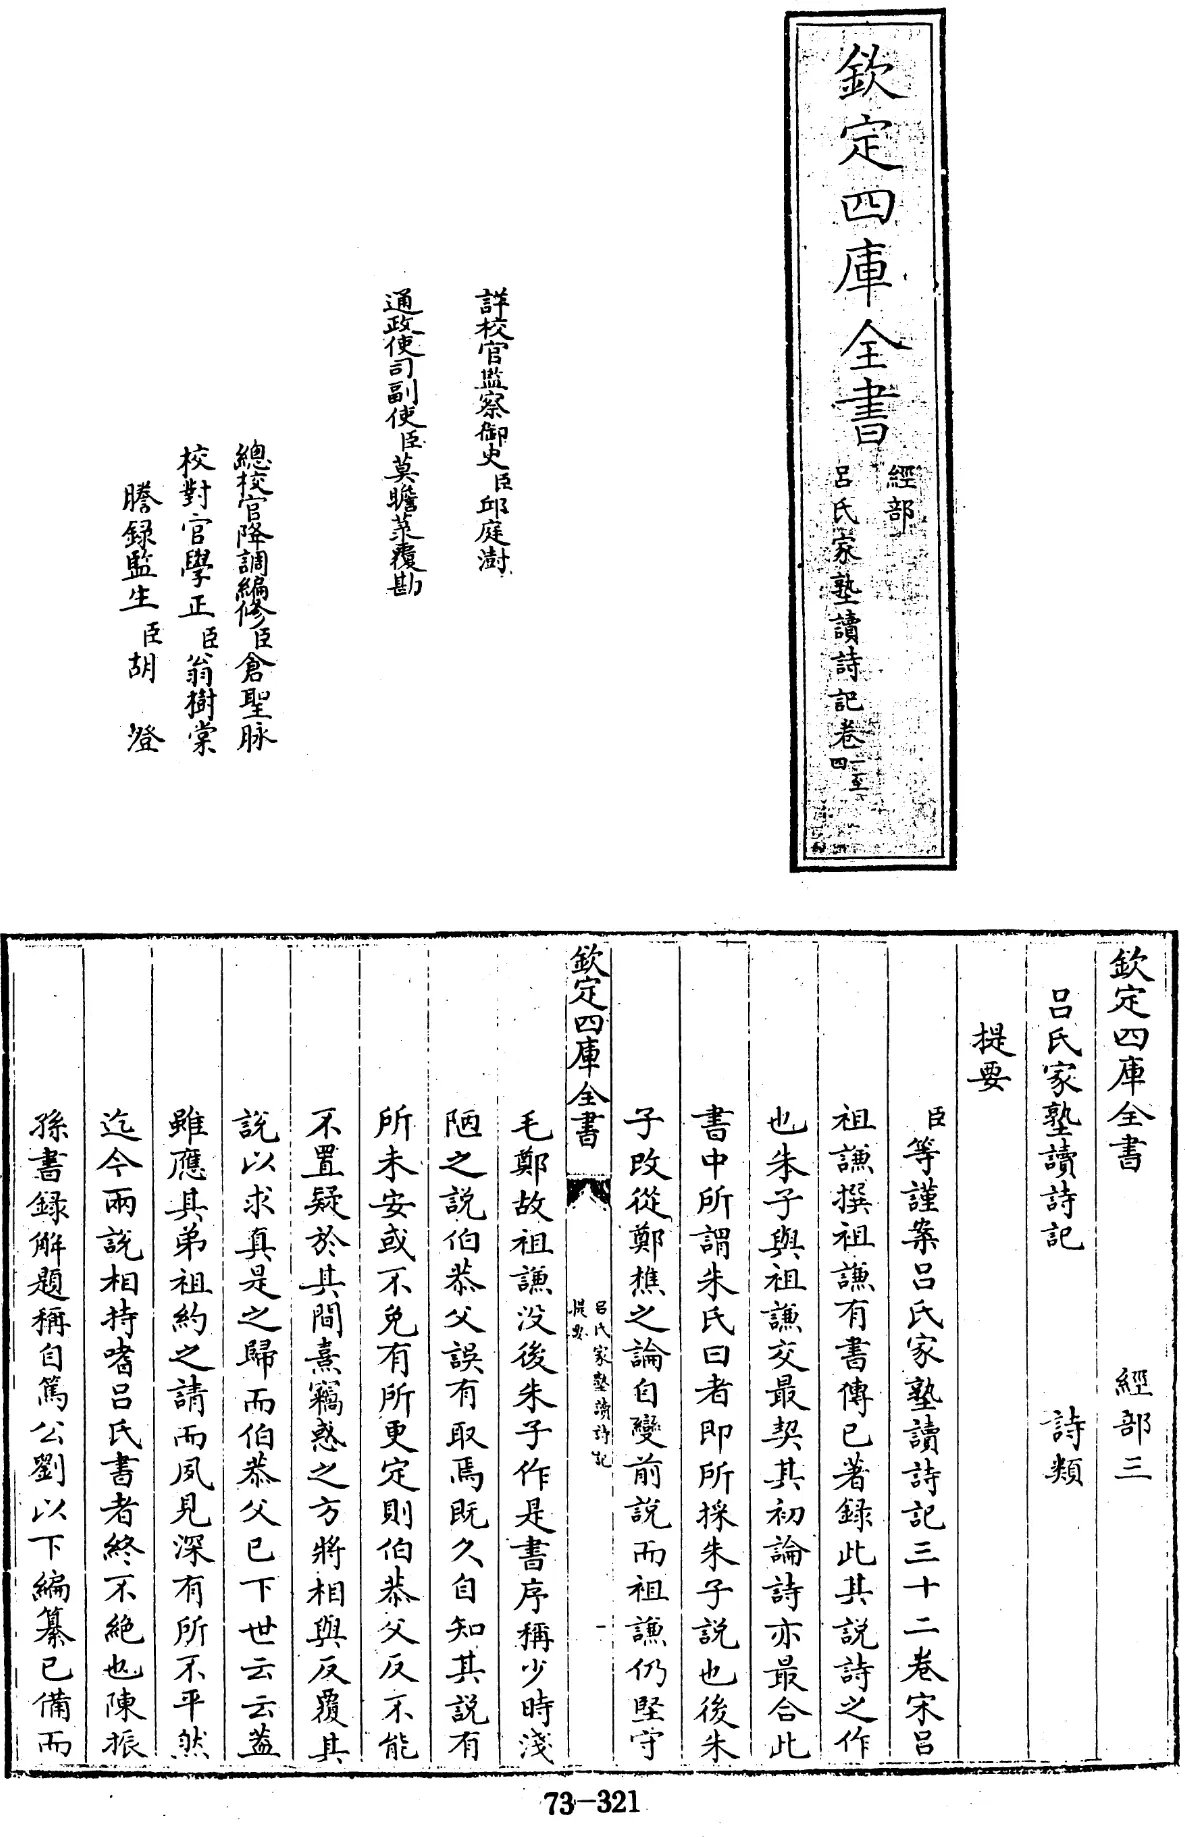 欽定四庫全書
經部
呂氏家塾讀詩記卷一至四
詳校官監察御史臣邱庭澍
通政使司副使臣莫瞻菉覆勘
總校官降調編修臣倉聖脉
校對官學正臣翁樹棠
謄録監生臣胡澄
欽定四庫全書 經部三
呂氏家塾讀詩記 詩類
提要
臣等謹案呂氏家塾讀詩記三十二卷宋呂
祖謙撰祖謙有書傳已著録此其說詩之作
也朱子與祖謙交最契其初論詩亦最合此
書中所謂朱氏曰者即所採朱子說也後朱
子改從鄭樵之論自變前說而祖謙仍堅守
欽定四庫全書
呂氏家塾讀詩記
提要
一
毛鄭故祖謙沒後朱子作是書序稱少時淺
陋之說伯恭父誤有取焉既久自知其說有
所未安或不免有所更定則伯恭父反不能
不置疑於其間熹竊惑之方將相與反覆其
說以求真是之歸而伯恭父已下世云云蓋
雖應其弟祖約之請而夙見深有所不平然
迄今兩說相持嗜呂氏書者終不絕也陳振
孫書録解題稱自篤公劉以下編纂已備而
73-321